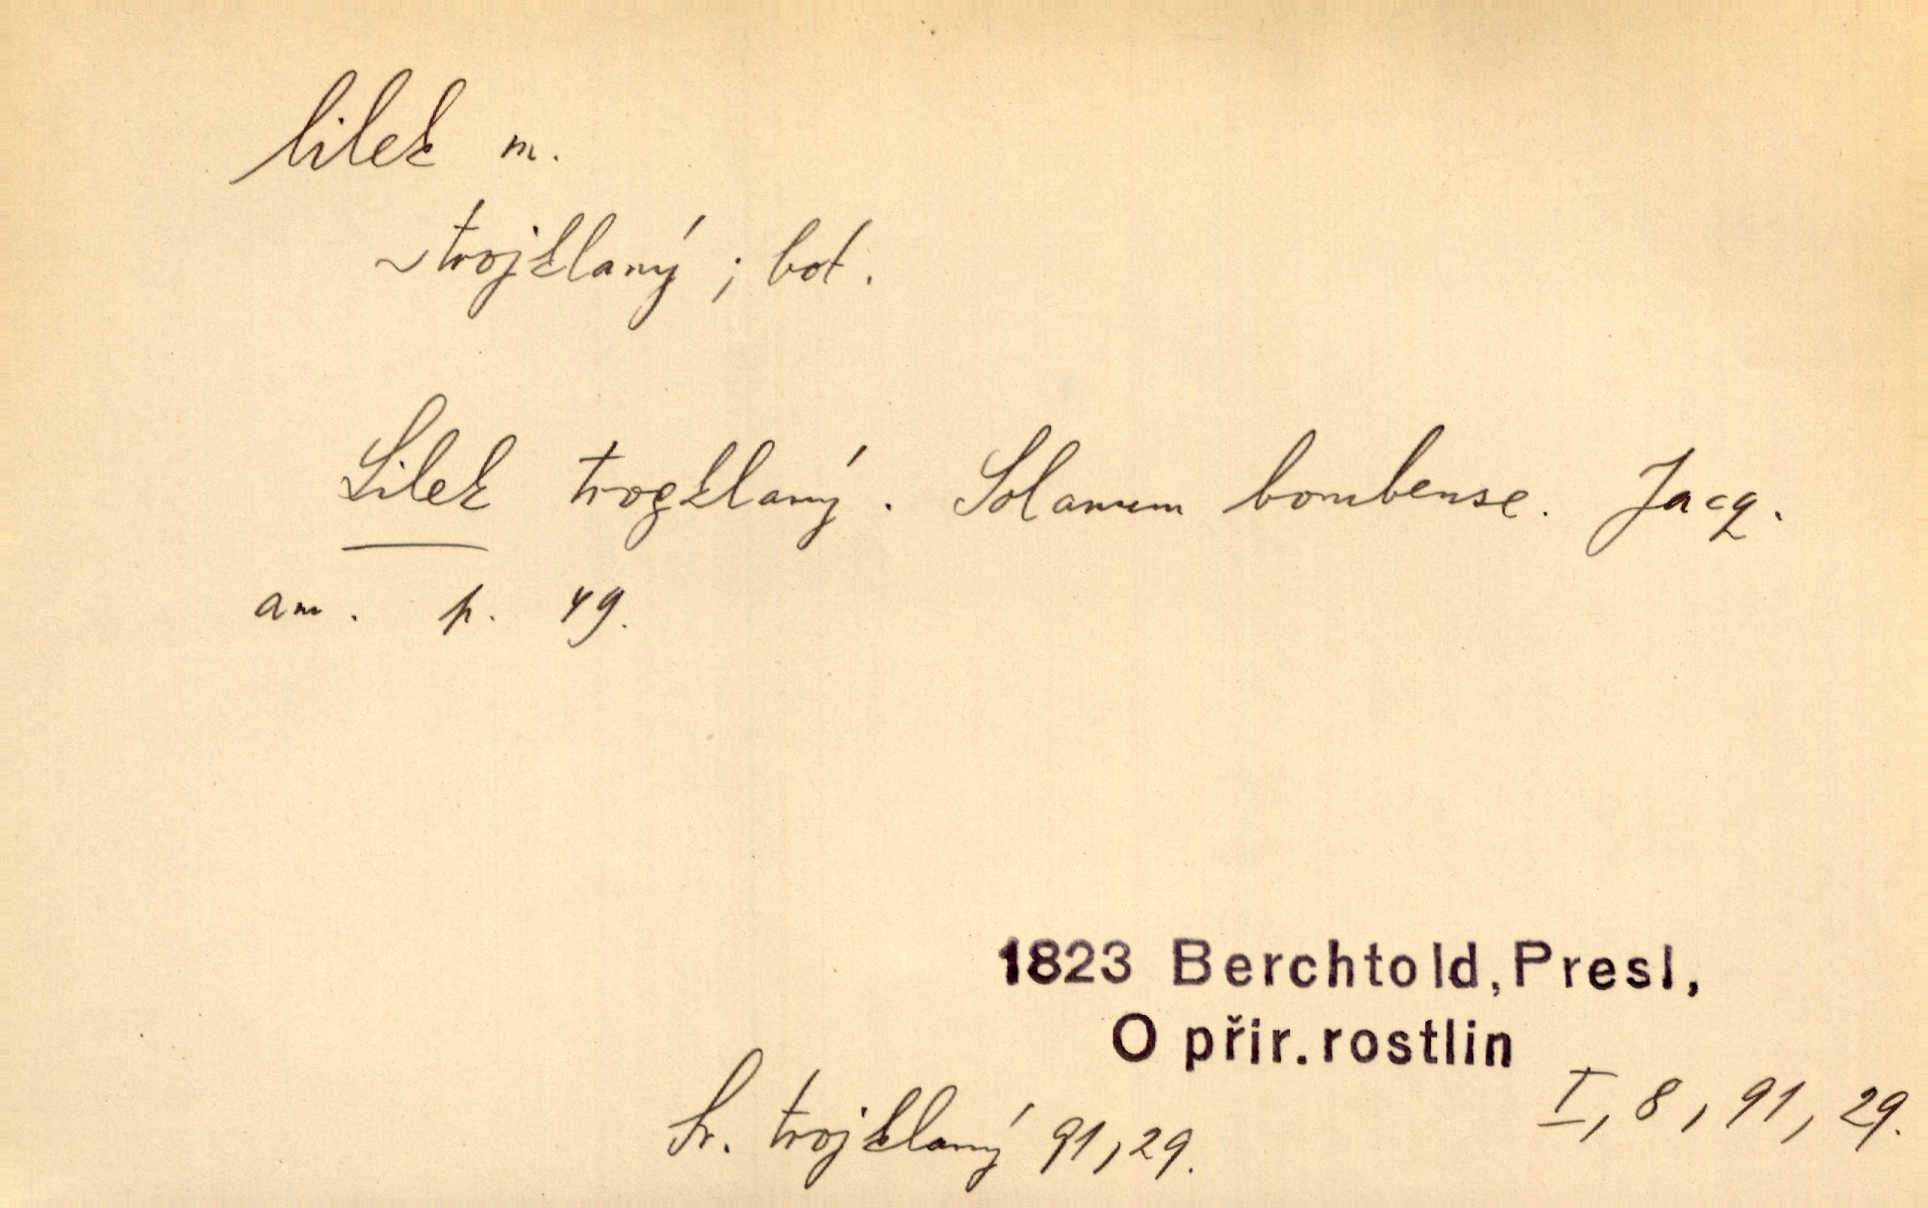 lilek m.
~ trojklaný ; bot.
Lilek trogklaný. Solanum bombense. Jacq.
am. p. 49.
1823 Berchtold, Presl,
O přir. rostlin
I, 8, 91, 29.
Sr. trojklaný 91, 29.